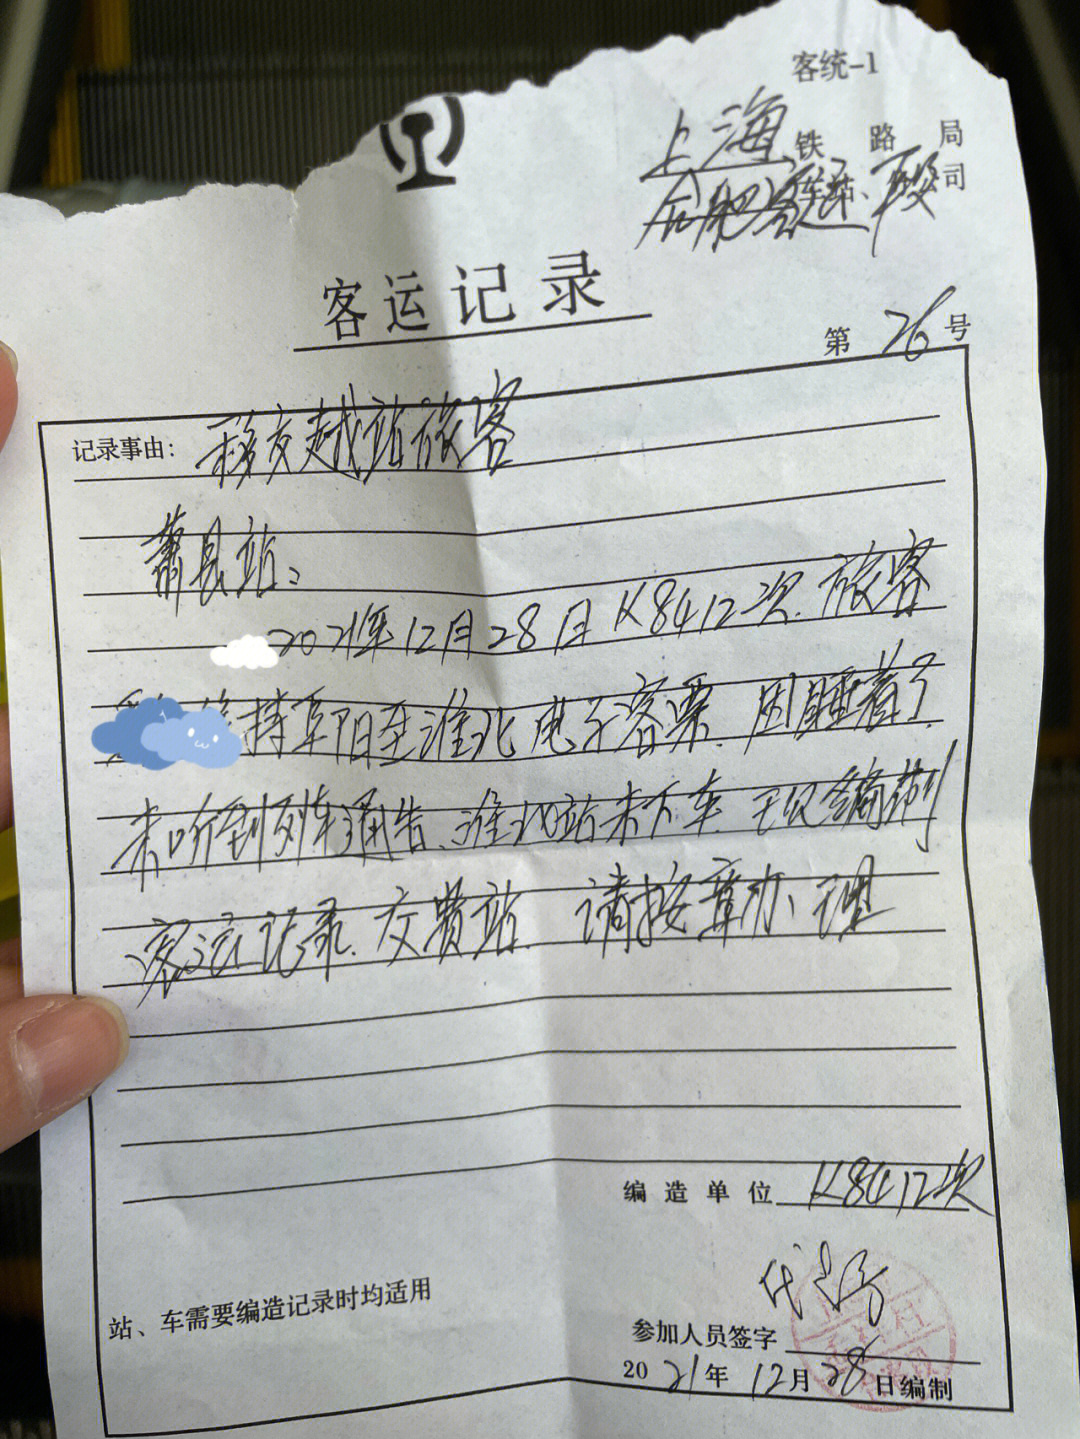 客统-1
上海铁路局
合肥客运段
客运记录
第26号
记录事由：移交越站旅客
萧县站：
2021年12月28日K8412次.旅客
持阜阳至淮北电子客票.因睡着了
未听到列车通告、淮北站未下车.现编制
客运记录.交贵站.请按章办理
编造单位 K8412次
站、车需要编造记录时均适用
参加人员签字
2021年12月28日编制